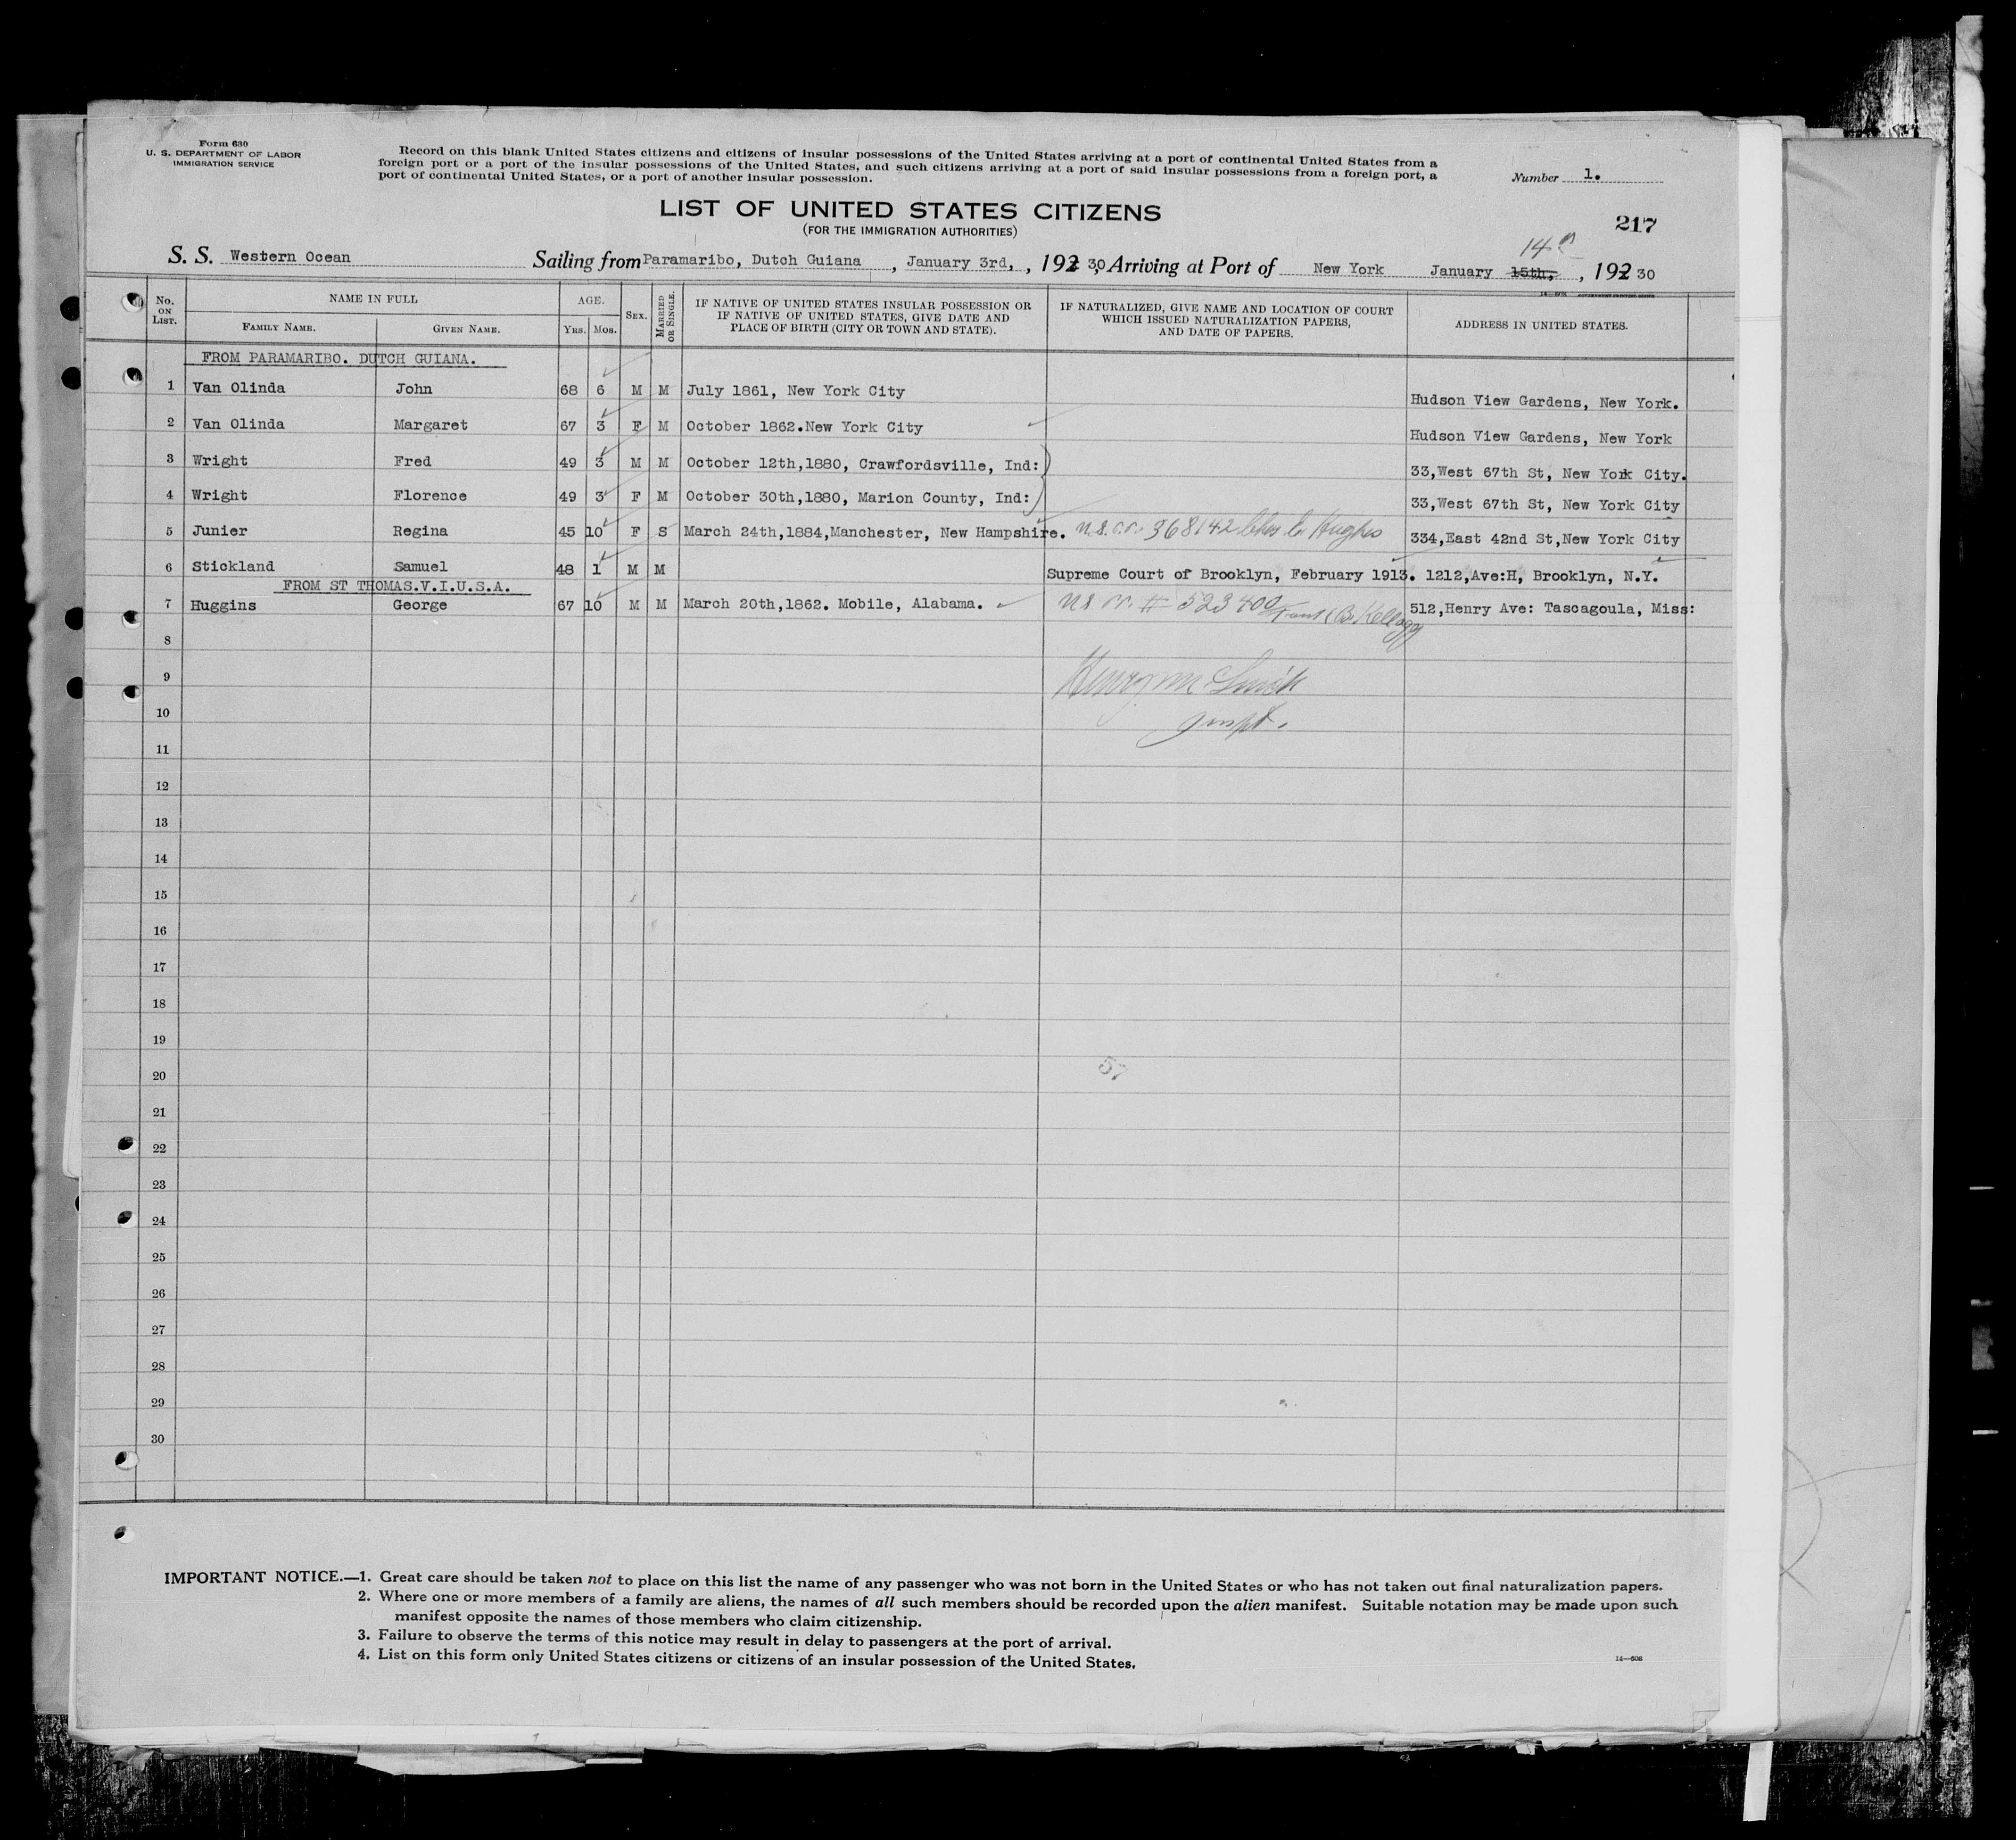 Form 630
U. S. DEPARTMENT OF LABOR
IMMIGRATION SERVICE
Record on this blank United States citizens and citizens of insular possessions of the United States arriving at a port of continental United States from a
foreign port or a port of the insular possessions of the United States, and such citizens arriving at a port of said insular possessions from a foreign port, a
port of continental United States, or a port of another insular possession.
Number 1.
LIST OF UNITED STATES CITIZENS
(FOR THE IMMIGRATION AUTHORITIES)
217
14th
S. S. Western Ocean Sailing from Paramaribo, Dutch Guiana, January 3rd, , 192 30, Arriving at Port of New York January 15th, , 192 30
No. ON LIST. NAME IN FULL FAMILY NAME. GIVEN NAME. AGE. YRS. MOS. SEX. MARRIED OR SINGLE. IF NATIVE OF UNITED STATES INSULAR POSSESSION OR IF NATIVE OF UNITED STATES, GIVE DATE AND PLACE OF BIRTH (CITY OR TOWN AND STATE). IF NATURALIZED, GIVE NAME AND LOCATION OF COURT WHICH ISSUED NATURALIZATION PAPERS, AND DATE OF PAPERS. ADDRESS IN UNITED STATES.
FROM PARAMARIBO. DUTCH GUIANA.
1 Van Olinda John 68 6 M M July 1861, New York City Hudson View Gardens, New York.
2 Van Olinda Margaret 67 3 F M October 1862.New York City Hudson View Gardens, New York
3 Wright Fred 49 3 M M October 12th,1880, Crawfordsville, Ind:) 33,West 67th St, New York City.
4 Wright Florence 49 3 F M October 30th,1880, Marion County, Ind:) 33,West 67th St, New York City
5 Junier Regina 45 10 F S March 24th,1884,Manchester, New Hampshire. 368142 Chas E. Hughes 334,East 42nd St,New York City
6 Stickland Samuel 48 1 M M Supreme Court of Brooklyn, February 1913. 1212,Ave:H, Brooklyn, N.Y.
FROM ST THOMAS.V.I.U.S.A.
7 Huggins George 67 10 M M March 20th,1862. Mobile, Alabama. # 523400 Frank B. Kellogg 512,Henry Ave: Tascagoula, Miss:
8
9 Henry M Smith
10 Inspt.
11
12
13
14
15
16
17
18
19
20 57
21
22
23
24
25
26
27
28
29
30
IMPORTANT NOTICE.—1. Great care should be taken not to place on this list the name of any passenger who was not born in the United States or who has not taken out final naturalization papers.
2. Where one or more members of a family are aliens, the names of all such members should be recorded upon the alien manifest. Suitable notation may be made upon such
manifest opposite the names of those members who claim citizenship.
3. Failure to observe the terms of this notice may result in delay to passengers at the port of arrival.
4. List on this form only United States citizens or citizens of an insular possession of the United States.
14—608